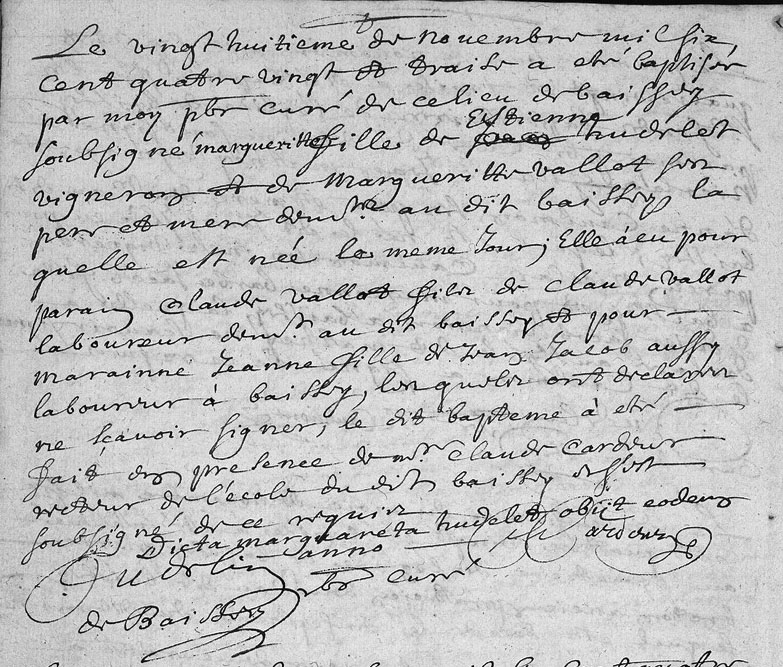 Le vingt huitieme de novembre mil six
cent quatre vingt et traise a eté baptisée
par moy pbr curé de ce lieu de baissey
soubsigné margueritte fille de Estienne hudelet
vigneron et de Margueritte vallot ses
pere et mere demts au dit baissey la
quelle est née le meme Jour; Elle à eu pour
parain Claude vallot filz de claude vallot
laboureur demt au dit baissey et pour
marainne Jeanne fille de Jean Jacob aussy
laboureur à baissey, les quelz ont declarer
ne sçavoir signer, le dit bapteme à eté
fait en presence de mtr Claude Cardeur
recteur de l'école du dit baissey et s'est
soubsigné de ce requis
Dicta margareta hudelet obijt eodem
anno
C Cardeur
pbr curé
de Baissey